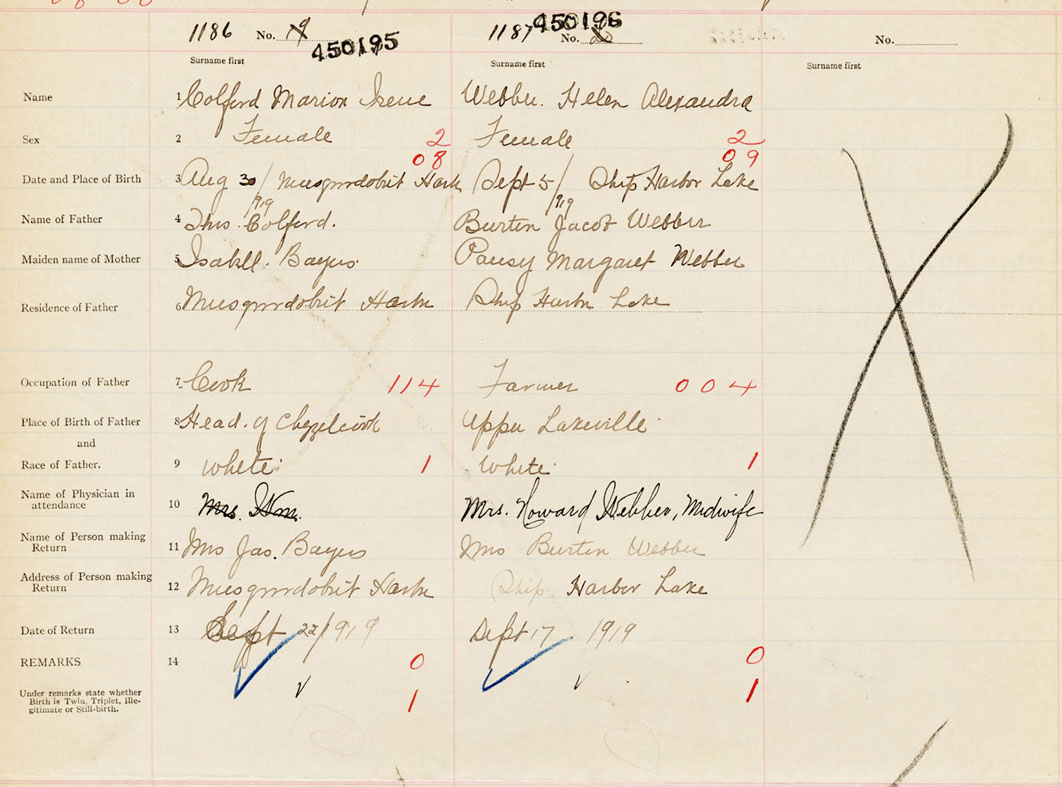 1186 No. 19 1187 No. 20 No.
450195 450196
Surname first Surname first Surname first
Name 1 Colford Marion Irene Webber. Helen Alexandra
Sex 2 Female 2 Female 2
08 09
Date and Place of Birth 3 Aug 30/1919 Musquodobit Harb Sept 5/1919 Ship Harbor Lake
Name of Father 4 Thos. Colford. Burton Jacob Webber
Maiden name of Mother 5 Isabell. Bayers. Pansy Margaret Webber
Residence of Father 6 Musquodobit Harbr Ship Harbr Lake
Occupation of Father 7 Cook 114 Farmer 004
Place of Birth of Father 8 Head. of Chezzetcook Upper Lakeville
and
Race of Father. 9 white 1 White 1
Name of Physician in 10 Mrs. Wm. Mrs. Howard Webber, Midwife
attendance
Name of Person making 11 Mrs Jas. Bayers Mrs Burton Webber
Return
Address of Person making 12 Musquodobit Harbr Ship Harbor Lake
Return
Date of Return 13 Sept 22/1919 Sept 17 1919
REMARKS 14 0 0
Under remarks state whether 1 1
Birth is Twin, Triplet, Ille-
gitimate or Still-birth.